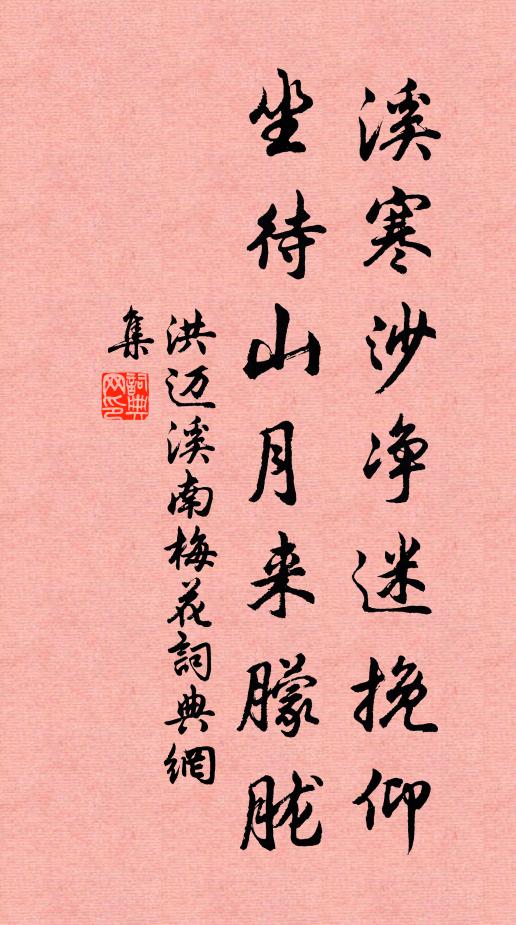 溪寒沙净迷挽仰
坐待山月来朦胧
洪迈溪南梅花詞典網
集
詞典网印